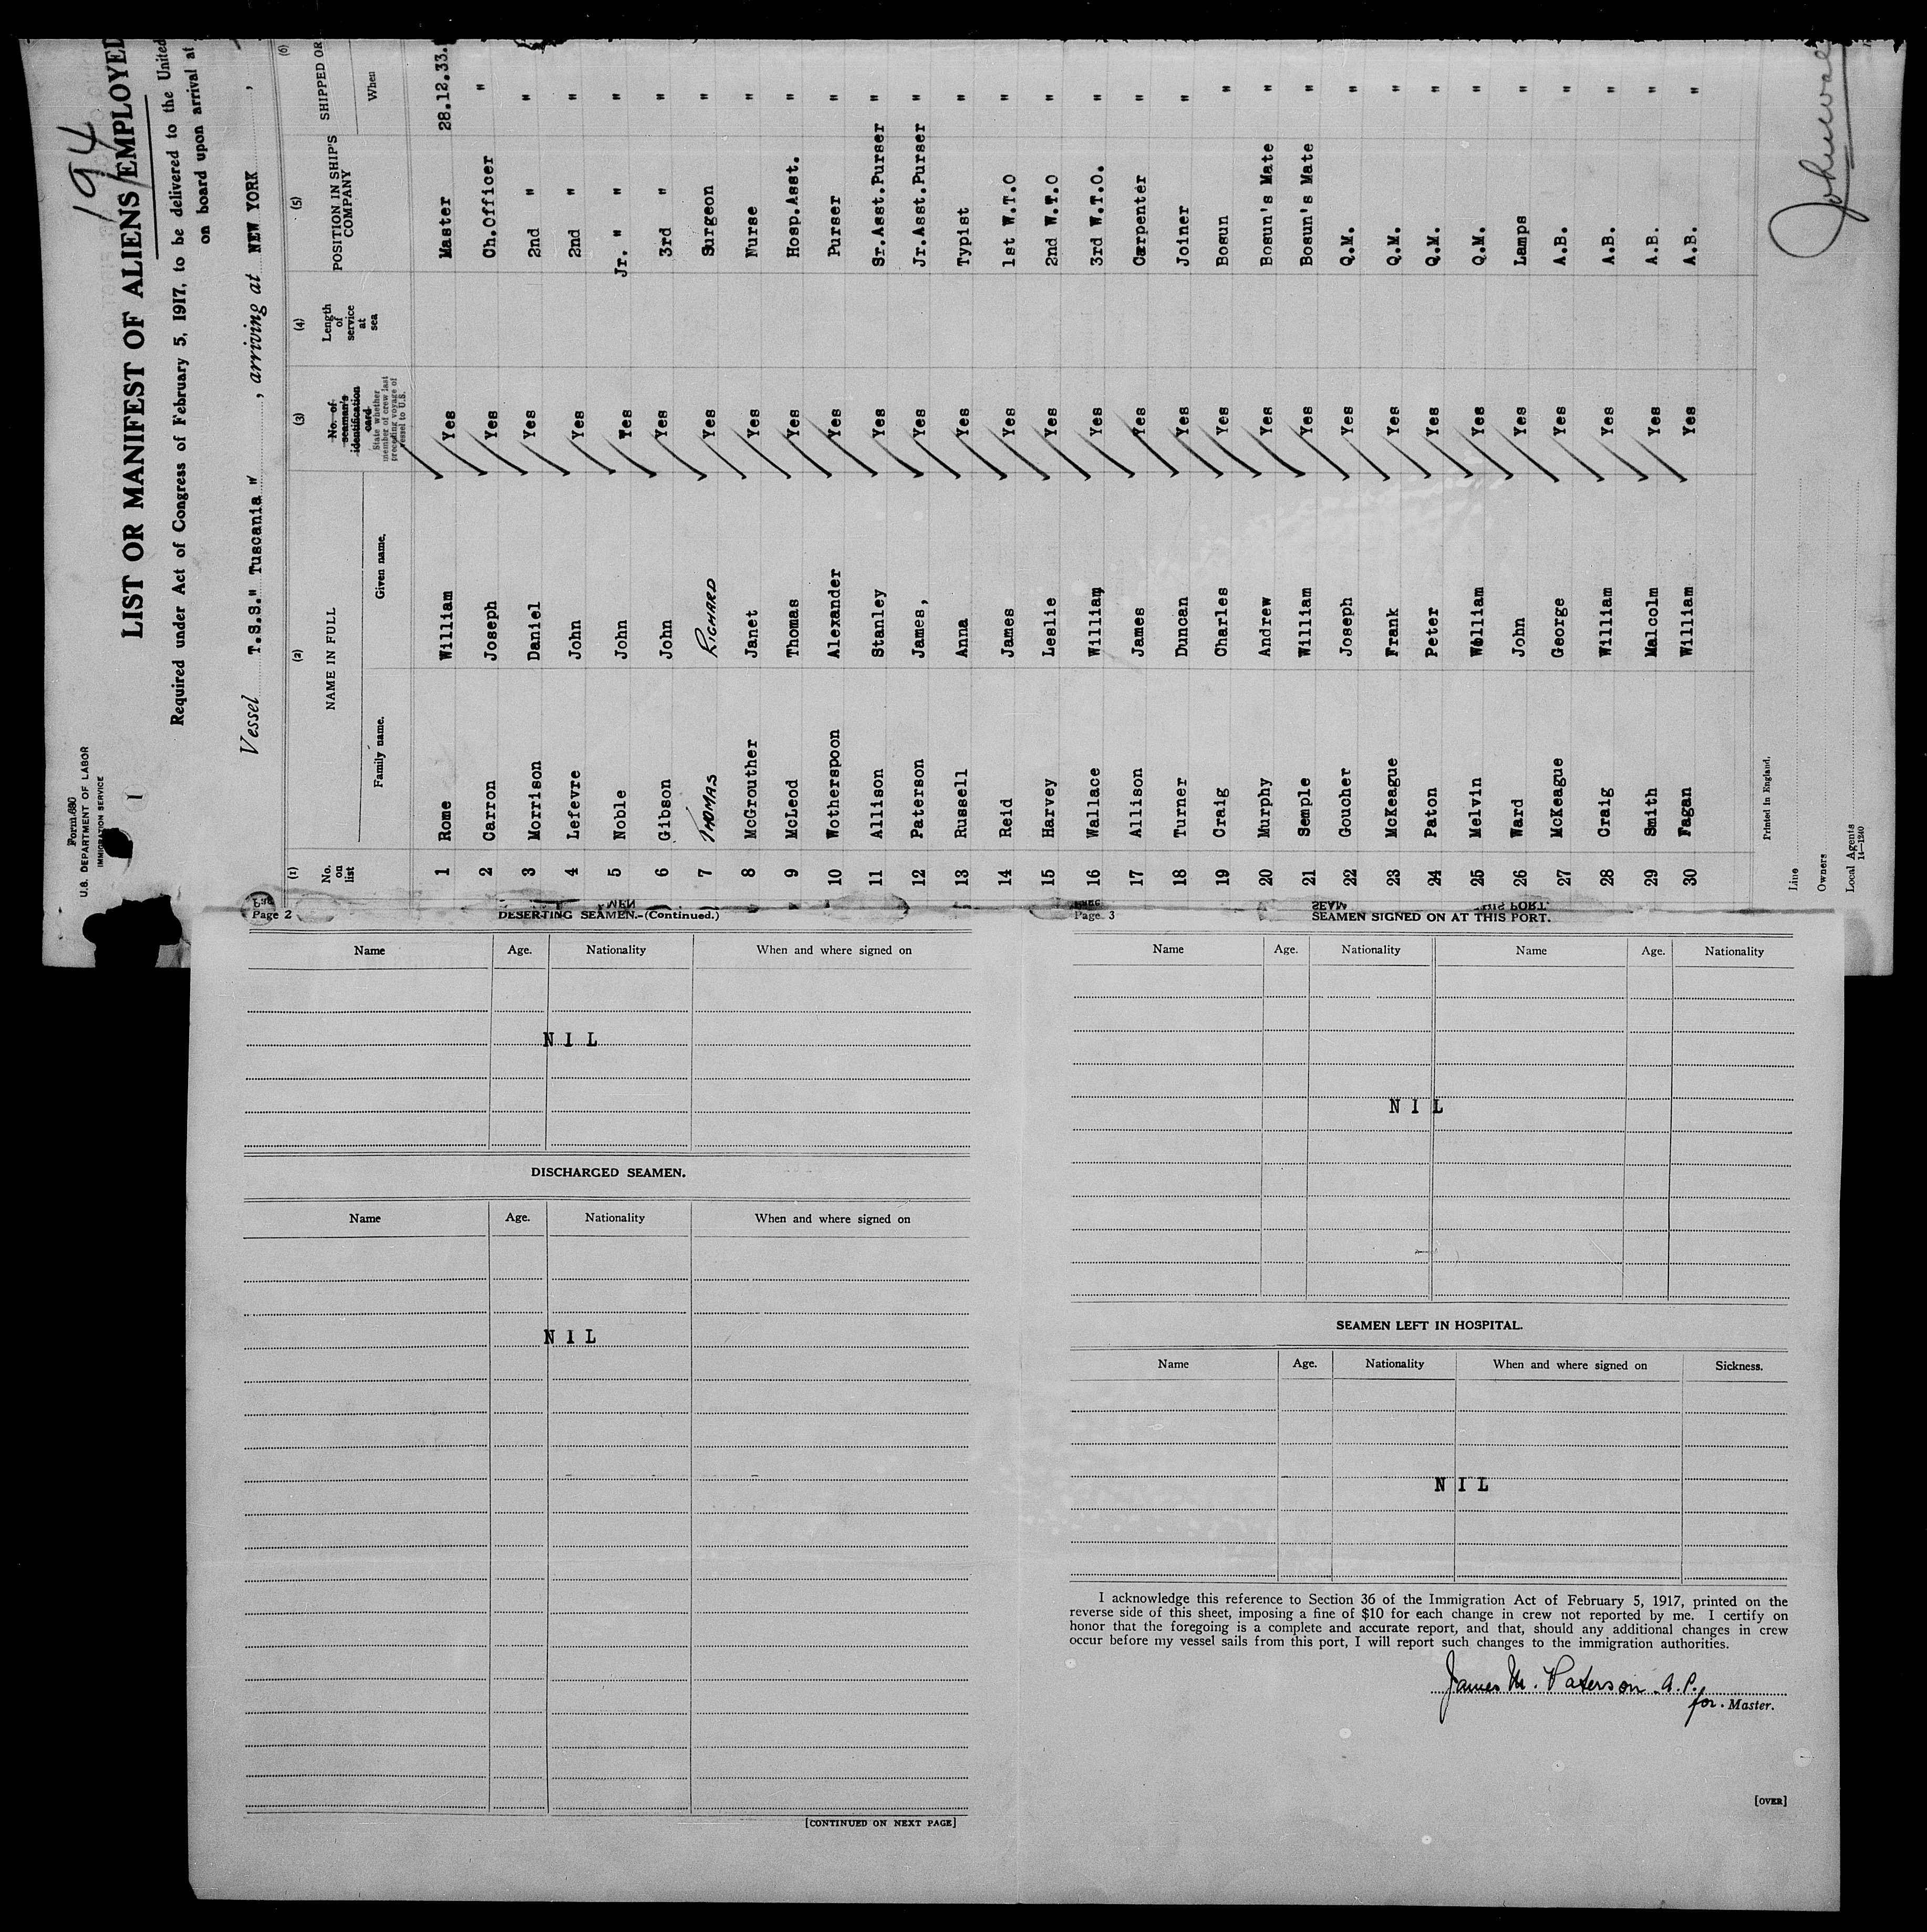 Form 680
U.S. DEPARTMENT OF LABOR
IMMIGRATION SERVICE
1
194
LIST OR MANIFEST OF ALIENS EMPLOYED
Required under Act of Congress of February 5, 1917, to be delivered to the United
on board upon arrival at
Vessel T.S.S." Tuscania ", arriving at NEW YORK ,
(1) (2) (3) (4) (5) (6)
No. on list NAME IN FULL No. of seaman's identification card State whether member of crew last preceding voyage of vessel to U.S. Length of service at sea POSITION IN SHIP'S COMPANY SHIPPED OR
Family name. Given name. When
1 Rome William Yes Master 28.12.33.
2 Carron Joseph Yes Ch.Officer "
3 Morrison Daniel Yes 2nd " "
4 Lefevre John Yes 2nd " "
5 Noble John Yes Jr. " " "
6 Gibson John Yes 3rd " "
7 THOMAS RICHARD Yes Surgeon "
8 McGrouther Janet Yes Nurse "
9 McLeod Thomas Yes Hosp.Asst. "
10 Wotherspoon Alexander Yes Purser "
11 Allison Stanley Yes Sr.Asst.Purser "
12 Paterson James, Yes Jr.Asst.Purser "
13 Russell Anna Yes Typist "
14 Reid James Yes 1st W.T.O "
15 Harvey Leslie Yes 2nd W.T.O "
16 Wallace William Yes 3rd W.T.O. "
17 Allison James Yes Carpenter "
18 Turner Duncan Yes Joiner "
19 Craig Charles Yes Bosun "
20 Murphy Andrew Yes Bosun's Mate "
21 Semple William Yes Bosun's Mate "
22 Goucher Joseph Yes Q.M. "
23 McKeague Frank Yes Q.M. "
24 Paton Peter Yes Q.M. "
25 Melvin William Yes Q.M. "
26 Ward John Yes Lamps "
27 McKeague George Yes A.B. "
28 Craig William Yes A.B. "
29 Smith Malcolm Yes A.B. "
30 Fagan William Yes A.B. "
Printed in England.
Line
Owners
Local Agents
14—1240
Page 2 DESERTING SEAMEN.-(Continued.)
Name Age. Nationality When and where signed on
N I L
DISCHARGED SEAMEN.
Name Age. Nationality When and where signed on
N I L
[CONTINUED ON NEXT PAGE]
Page 3 SEAMEN SIGNED ON AT THIS PORT.
Name Age. Nationality Name Age. Nationality
N I L
SEAMEN LEFT IN HOSPITAL.
Name Age. Nationality When and where signed on Sickness.
N I L
I acknowledge this reference to Section 36 of the Immigration Act of February 5, 1917, printed on the
reverse side of this sheet, imposing a fine of $10 for each change in crew not reported by me. I certify on
honor that the foregoing is a complete and accurate report, and that, should any additional changes in crew
occur before my vessel sails from this port, I will report such changes to the immigration authorities.
James M. Paterson A.P.
for. Master.
[OVER]